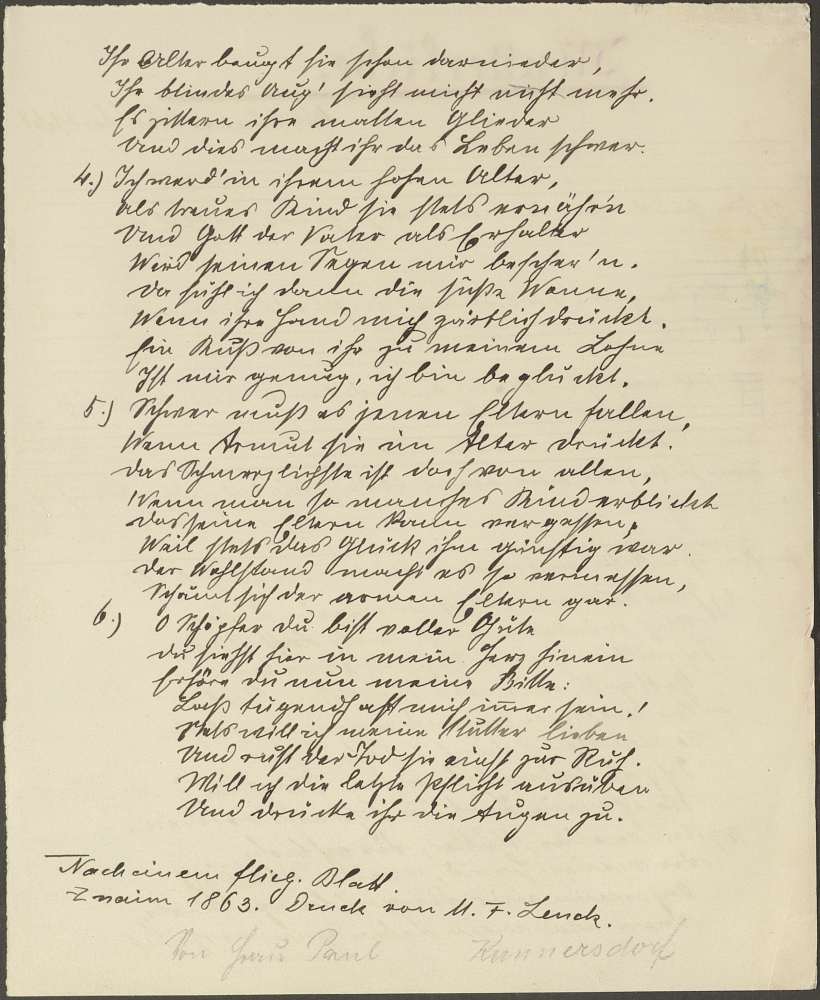 Ihr Alter beugt sie schon darnieder,
Ihr blindes Aug' sieht mich nicht mehr.
Es zittern ihre matten Glieder
Und dies macht ihr das Leben schwer.
4.) Ich werd' in ihrem hohen Alter,
Als treues Kind sie stets ernähr'n
Und Gott der Vater als Erhalter
Wird seinen Segen mir bescher'n.
Da fühl ich dann die süße Wonne,
Wenn ihre Hand mich zärtlich drückt.
Ein Kuß von ihr zu meinem Lohne
Ist mir genug, ich bin beglückt.
5.) Schwer muß es jenen Eltern fallen,
Wenn Armut sie im Alter drückt.
Das Schmerzlichste ist doch von allen,
Wenn man so manches Kind erblickt
das seine Eltern kann vergessen,
Weil stets das Glück ihm günstig war.
Der Wohlstand macht es so vermessen,
Schämt sich der armen Eltern gar.
6.) O Schöpfer du bist voller Güte
du siehst hier in mein Herz hinein
Erhöre du nun meine Bitte:
Laß tugendhaft mich immer sein!
Stets will ich meine Mutter lieben
Und ruft der Tod sie einst zur Ruh.
Will ich die letzte Pflicht ausüben
Und drücke ihr die Augen zu.
Nach einem flieg. Blatt.
Znaim 1863. Druck von M. F. Lenck.
Von Frau Paul Kunnersdorf